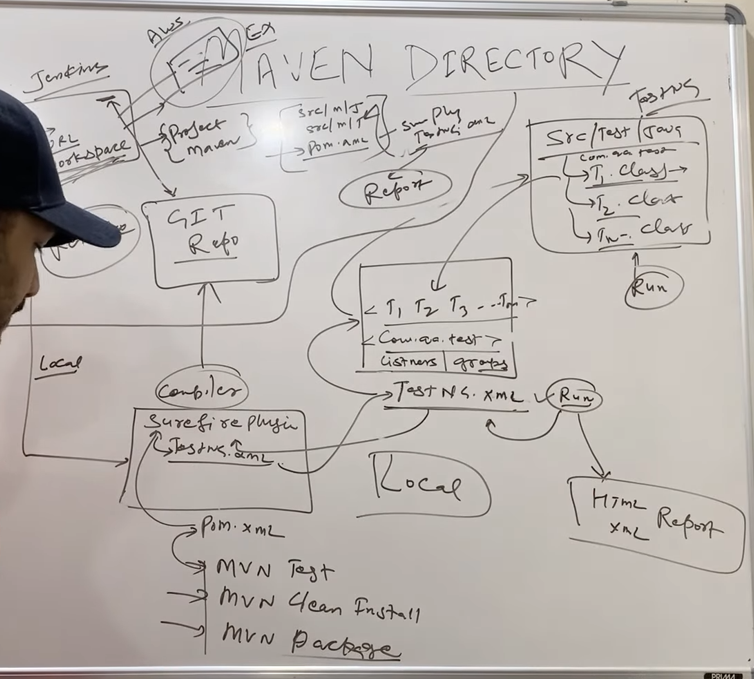 AWS
EX
Jenkins
MAVEN DIRECTORY
URL
workspace
Project
Maven
src/m/J
src/m/T
Pom.xml
TestNG.xml
Report
TestNG
Src/Test/Java
com.qa.test
T1.class
T2.class
Tn-.class
Run
GIT
Repo
< T1 T2 T3 ---Tn >
< Com.qa.test >
Listners groups
TestNG.xml
Run
Local
Compiler
Surefire Plugin
TestNG.xml
Local
HTML
XML Report
Pom.xml
MVN Test
MVN Clean Install
MVN Package
PRIMA